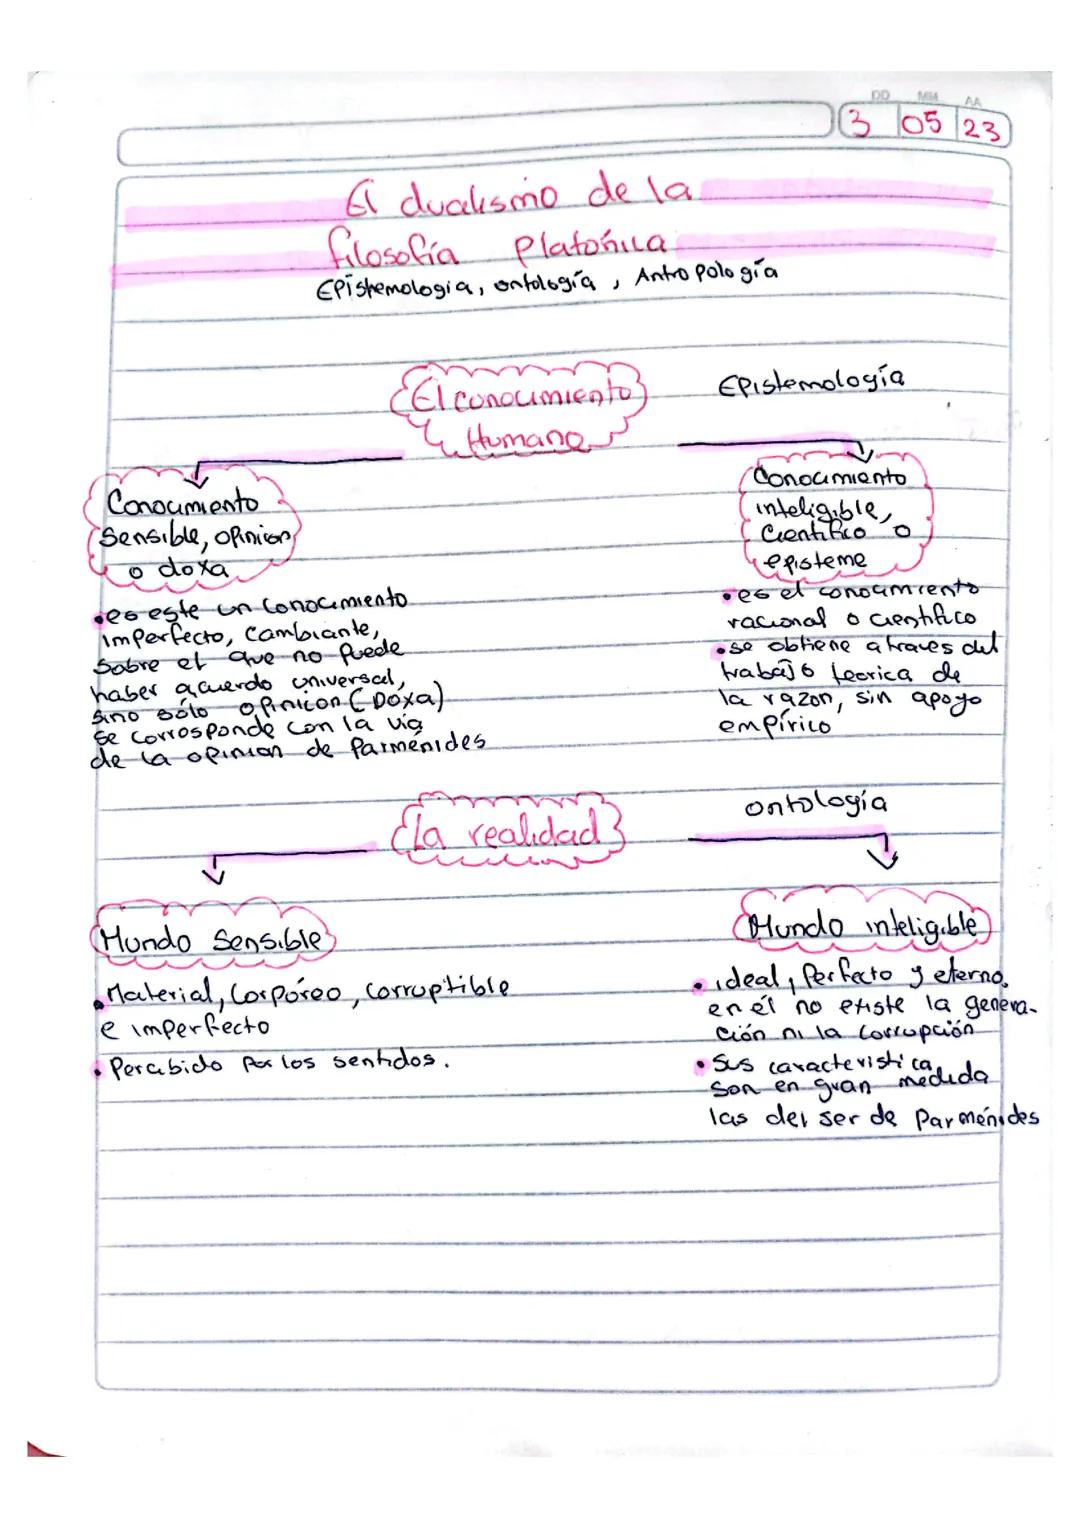 DD MM AA
3 05 23
El dualismo de la
filosofía Platónica
Epistemologia, ontología, Antropología
El conocimiento
Humano
Epistemología
Conocimiento
Sensible, opinion
o doxa
• es este un Conocimiento
imperfecto, Cambiante,
Sobre el que no puede
haber acuerdo universal,
sino sólo opinicon (Dóxa)
se corresponde con la vía
de la opinion de Parménides
Conocimiento
inteligible,
Científico o
episteme
• es el conocimiento
racional o científico
• se obtiene a traves del
trabajo teorica de
la razon, sin apoyo
empírico
La realidad
ontología
Mundo Sensible
• Material, Corpóreo, corruptible
e imperfecto
• Percibido por los sentidos.
Mundo inteligible
• ideal, Perfecto y eterno,
en él no existe la genera-
ción ni la corrupción
• Sus caracteristica
Son en gran medida
las del ser de Parménides